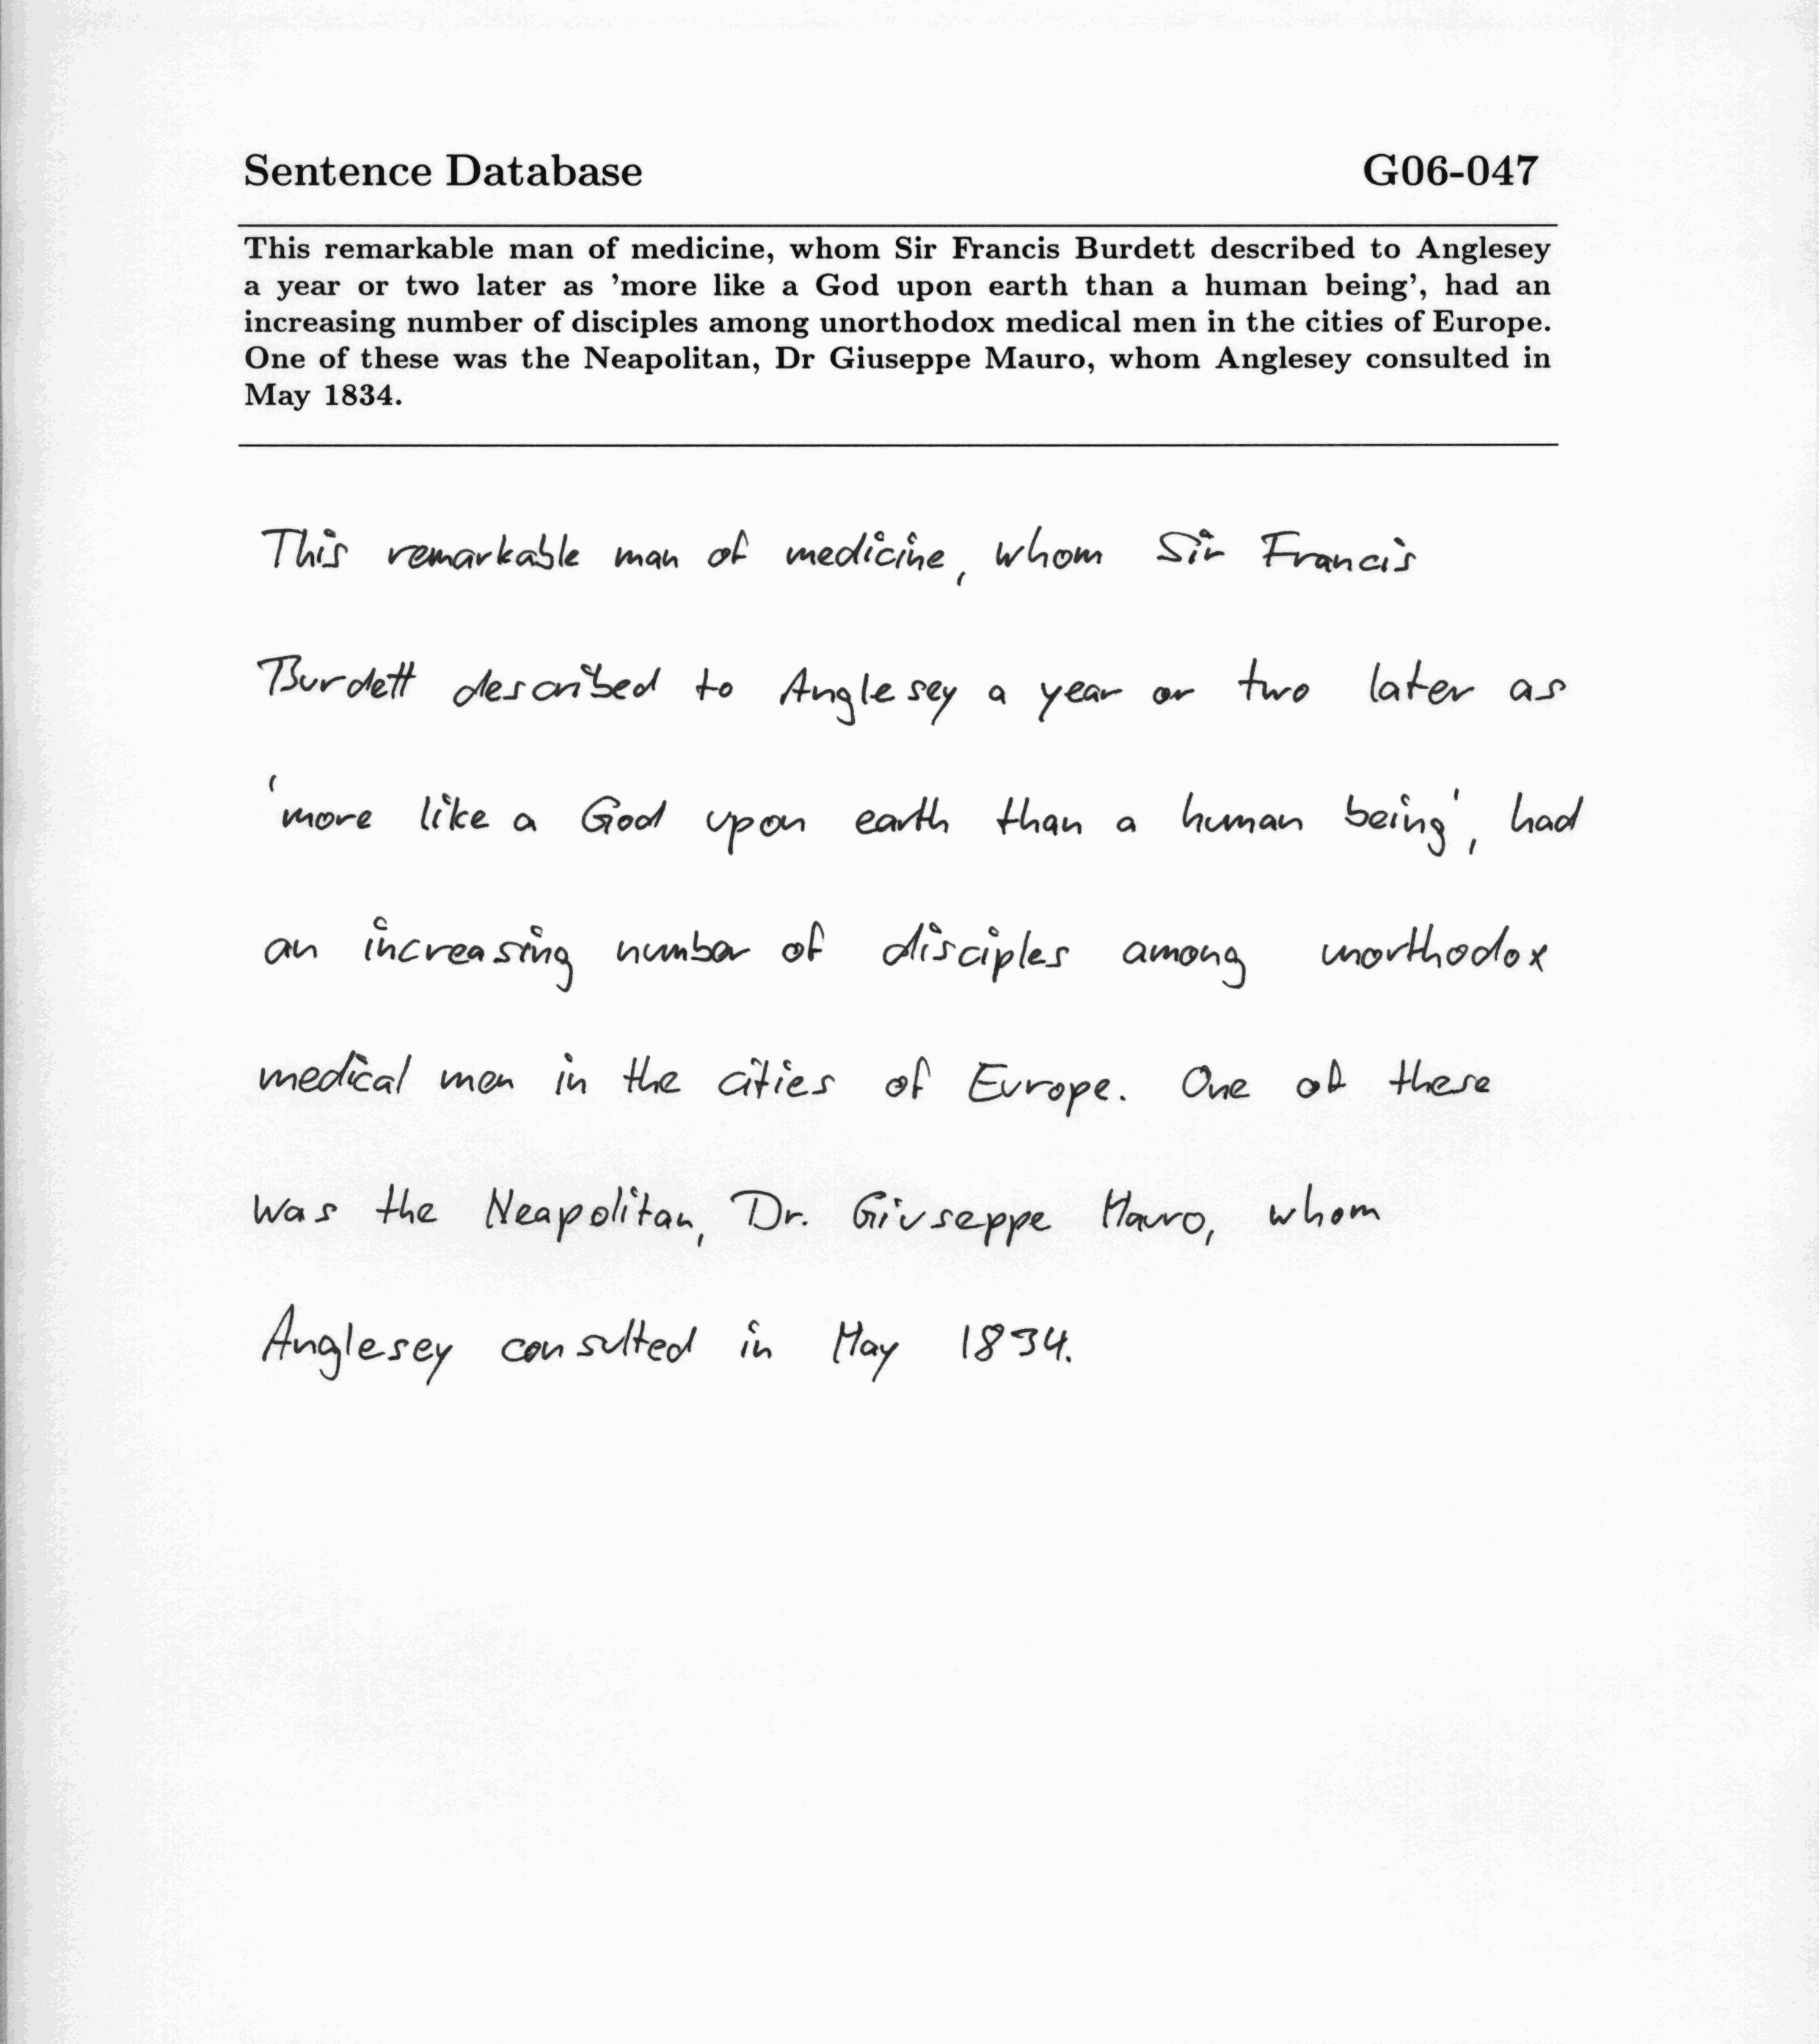 Sentence Database G06-047
This remarkable man of medicine, whom Sir Francis Burdett described to Anglesey
a year or two later as 'more like a God upon earth than a human being', had an
increasing number of disciples among unorthodox medical men in the cities of Europe.
One of these was the Neapolitan, Dr Giuseppe Mauro, whom Anglesey consulted in
May 1834.
This remarkable man of medicine, whom Sir Francis
Burdett described to Anglesey a year or two later as
'more like a God upon earth than a human being', had
an increasing number of disciples among unorthodox
medical men in the cities of Europe. One of these
was the Neapolitan, Dr. Giuseppe Mauro, whom
Anglesey consulted in May 1834.